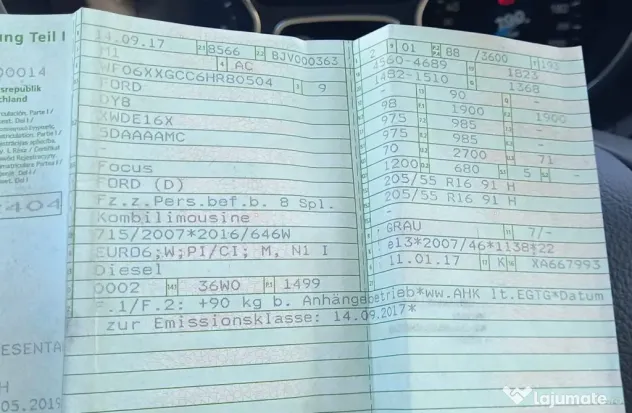 ung Teil I
00014
srepublik
chland
404
ESENTA
H
.05.2019
14.09.17 2.1 8566 2.2 BJV000363
M1 AC
WF06XXGCC6HR80504 3 9
FORD
DYB
XWDE16X
5DAAAAMC
-
Focus
FORD (D)
Fz.z.Pers.bef.b. 8 Spl.
Kombilimousine
715/2007*2016/646W
EURO6;W;PI/CI; M, N1 I
Diesel
0002 14.1 36W0 P.1 1499
F.1/F.2: +90 kg b. Anhängebetrieb*ww.AHK lt.EGTG*Datum
zur Emissionsklasse: 14.09.2017*
01 88 /3600 193
4560-4689 1823
1482-1510 1368
- 90 -
98 1900 1900
975 985 -
975 985 -
70 2700 71
1200 680 5 -
205/55 R16 91 H
205/55 R16 91 H
-
GRAU 7/-
e13*2007/46*1138*22
11.01.17 17 K 16 XA667993
Lajumate